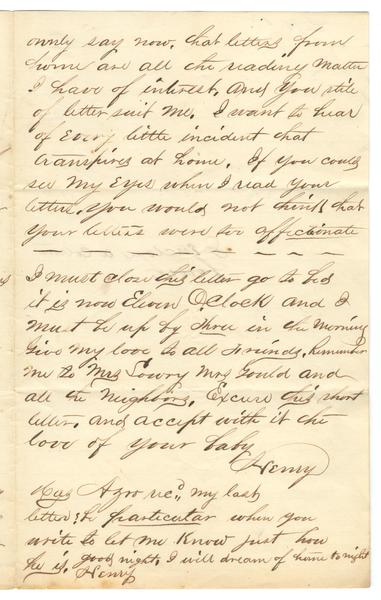 ownly say now, that letters from
home are all the reading matter
I have of interest. And Your stile
of letter suit me. I want to hear
of Every little incident that
transpires at home. If you could
see my Eyes when I read your
letters. you would not think that
your letters were too affectionate
I must close this letter go to bed
it is now Eleven O,Clock and I
must be up by three in the morning
Give my love to all Friends, Remember
me to Mrs Lowry Mrs Gould and
all the Neighbors. Excuse this short
letter. and accept with it the
love of your baby
Henry
Has Azro recd my last
letter; be particular when you
write to let me know just how
he is. good night, I will dream of home to night
Henry